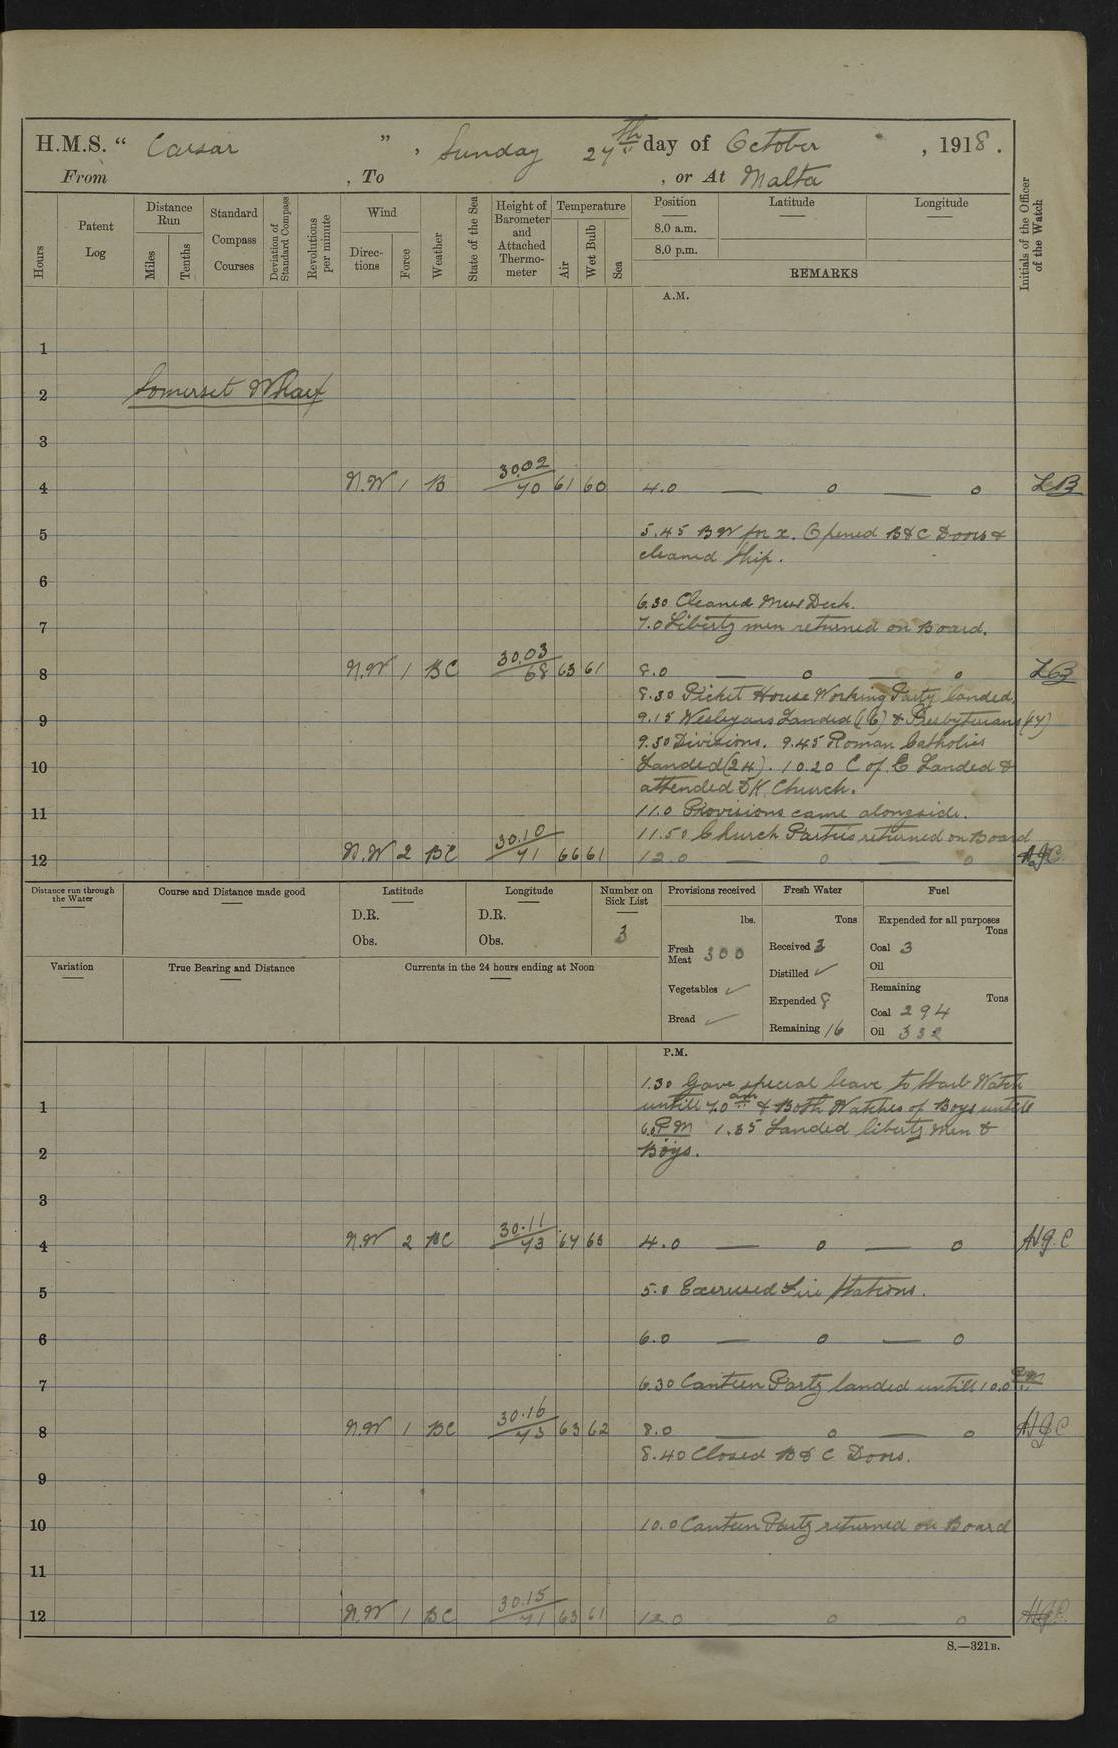 H.M.S. “ Caesar ”, Sunday 27th day of October, 1918.
From , To , or At Malta
Hours
Patent Log
Distance Run
Miles
Tenths
Standard Compass Courses
Deviation of Standard Compass
Revolutions per minute
Wind
Direc- tions
Force
Weather
State of the Sea
Height of Barometer and Attached Thermo- meter
Temperature
Air
Wet Bulb
Sea
Position
8.0 a.m.
8.0 p.m.
Latitude
Longitude
REMARKS
Initials of the Officer of the Watch
A.M.
1
2 Somerset Wharf
3
4 N.W 1 B 30.02/70 61 60 4.0 — o — o LB
5 5.45 BW for x. Opened B & C Doors &
cleaned Ship.
6
6.30 Cleaned Mess Deck.
7 7.0 Liberty men returned on Board.
8 N.W 1 BC 30.03/68 63 61 8.0 — o — o LB
8.30 Picket House Working Party landed.
9 9.15 Wesleyans Landed (16) & Presbyterians (14)
9.30 Divisions. 9.45 Roman Catholics
10 Landed (24). 10.20 C of E Landed &
attended DK Church.
11 11.0 Provisions came alongside.
11.50 Church Parties returned on Board
12 N.W 2 BC 30.10/71 66 61 12.0 — o — o HJC.
Distance run through the Water
Course and Distance made good
Latitude
D.R.
Obs.
Longitude
D.R.
Obs.
Number on Sick List
3
Provisions received
lbs.
Fresh Meat 300
Vegetables ✓
Bread ✓
Fresh Water
Tons
Received 3
Distilled ✓
Expended 8
Remaining 16
Fuel
Expended for all purposes
Tons
Coal 3
Oil
Remaining
Tons
Coal 294
Oil 332
Variation
True Bearing and Distance
Currents in the 24 hours ending at Noon
P.M.
1.30 Gave special leave to Starb Watch
1 untill 7.0 am & Both Watches of Boys untill
6.0 PM 1.35 Landed liberty men &
2 Boys.
3
4 N.W 2 BC 30.11/73 67 63 4.0 — o — o HJ.C
5 5.0 Exercised Fire Stations.
6 6.0 — o — o
7 6.30 Canteen Party landed untill 10.0 PM
8 N.W 1 BC 30.16/73 63 62 8.0 — o — o HJC
8.40 Closed B & C Doors.
9
10 10.0 Canteen Party returned on Board
11
12 N.W 1 BC 30.15/71 63 61 12.0 — o — o HJC.
S.—321B.